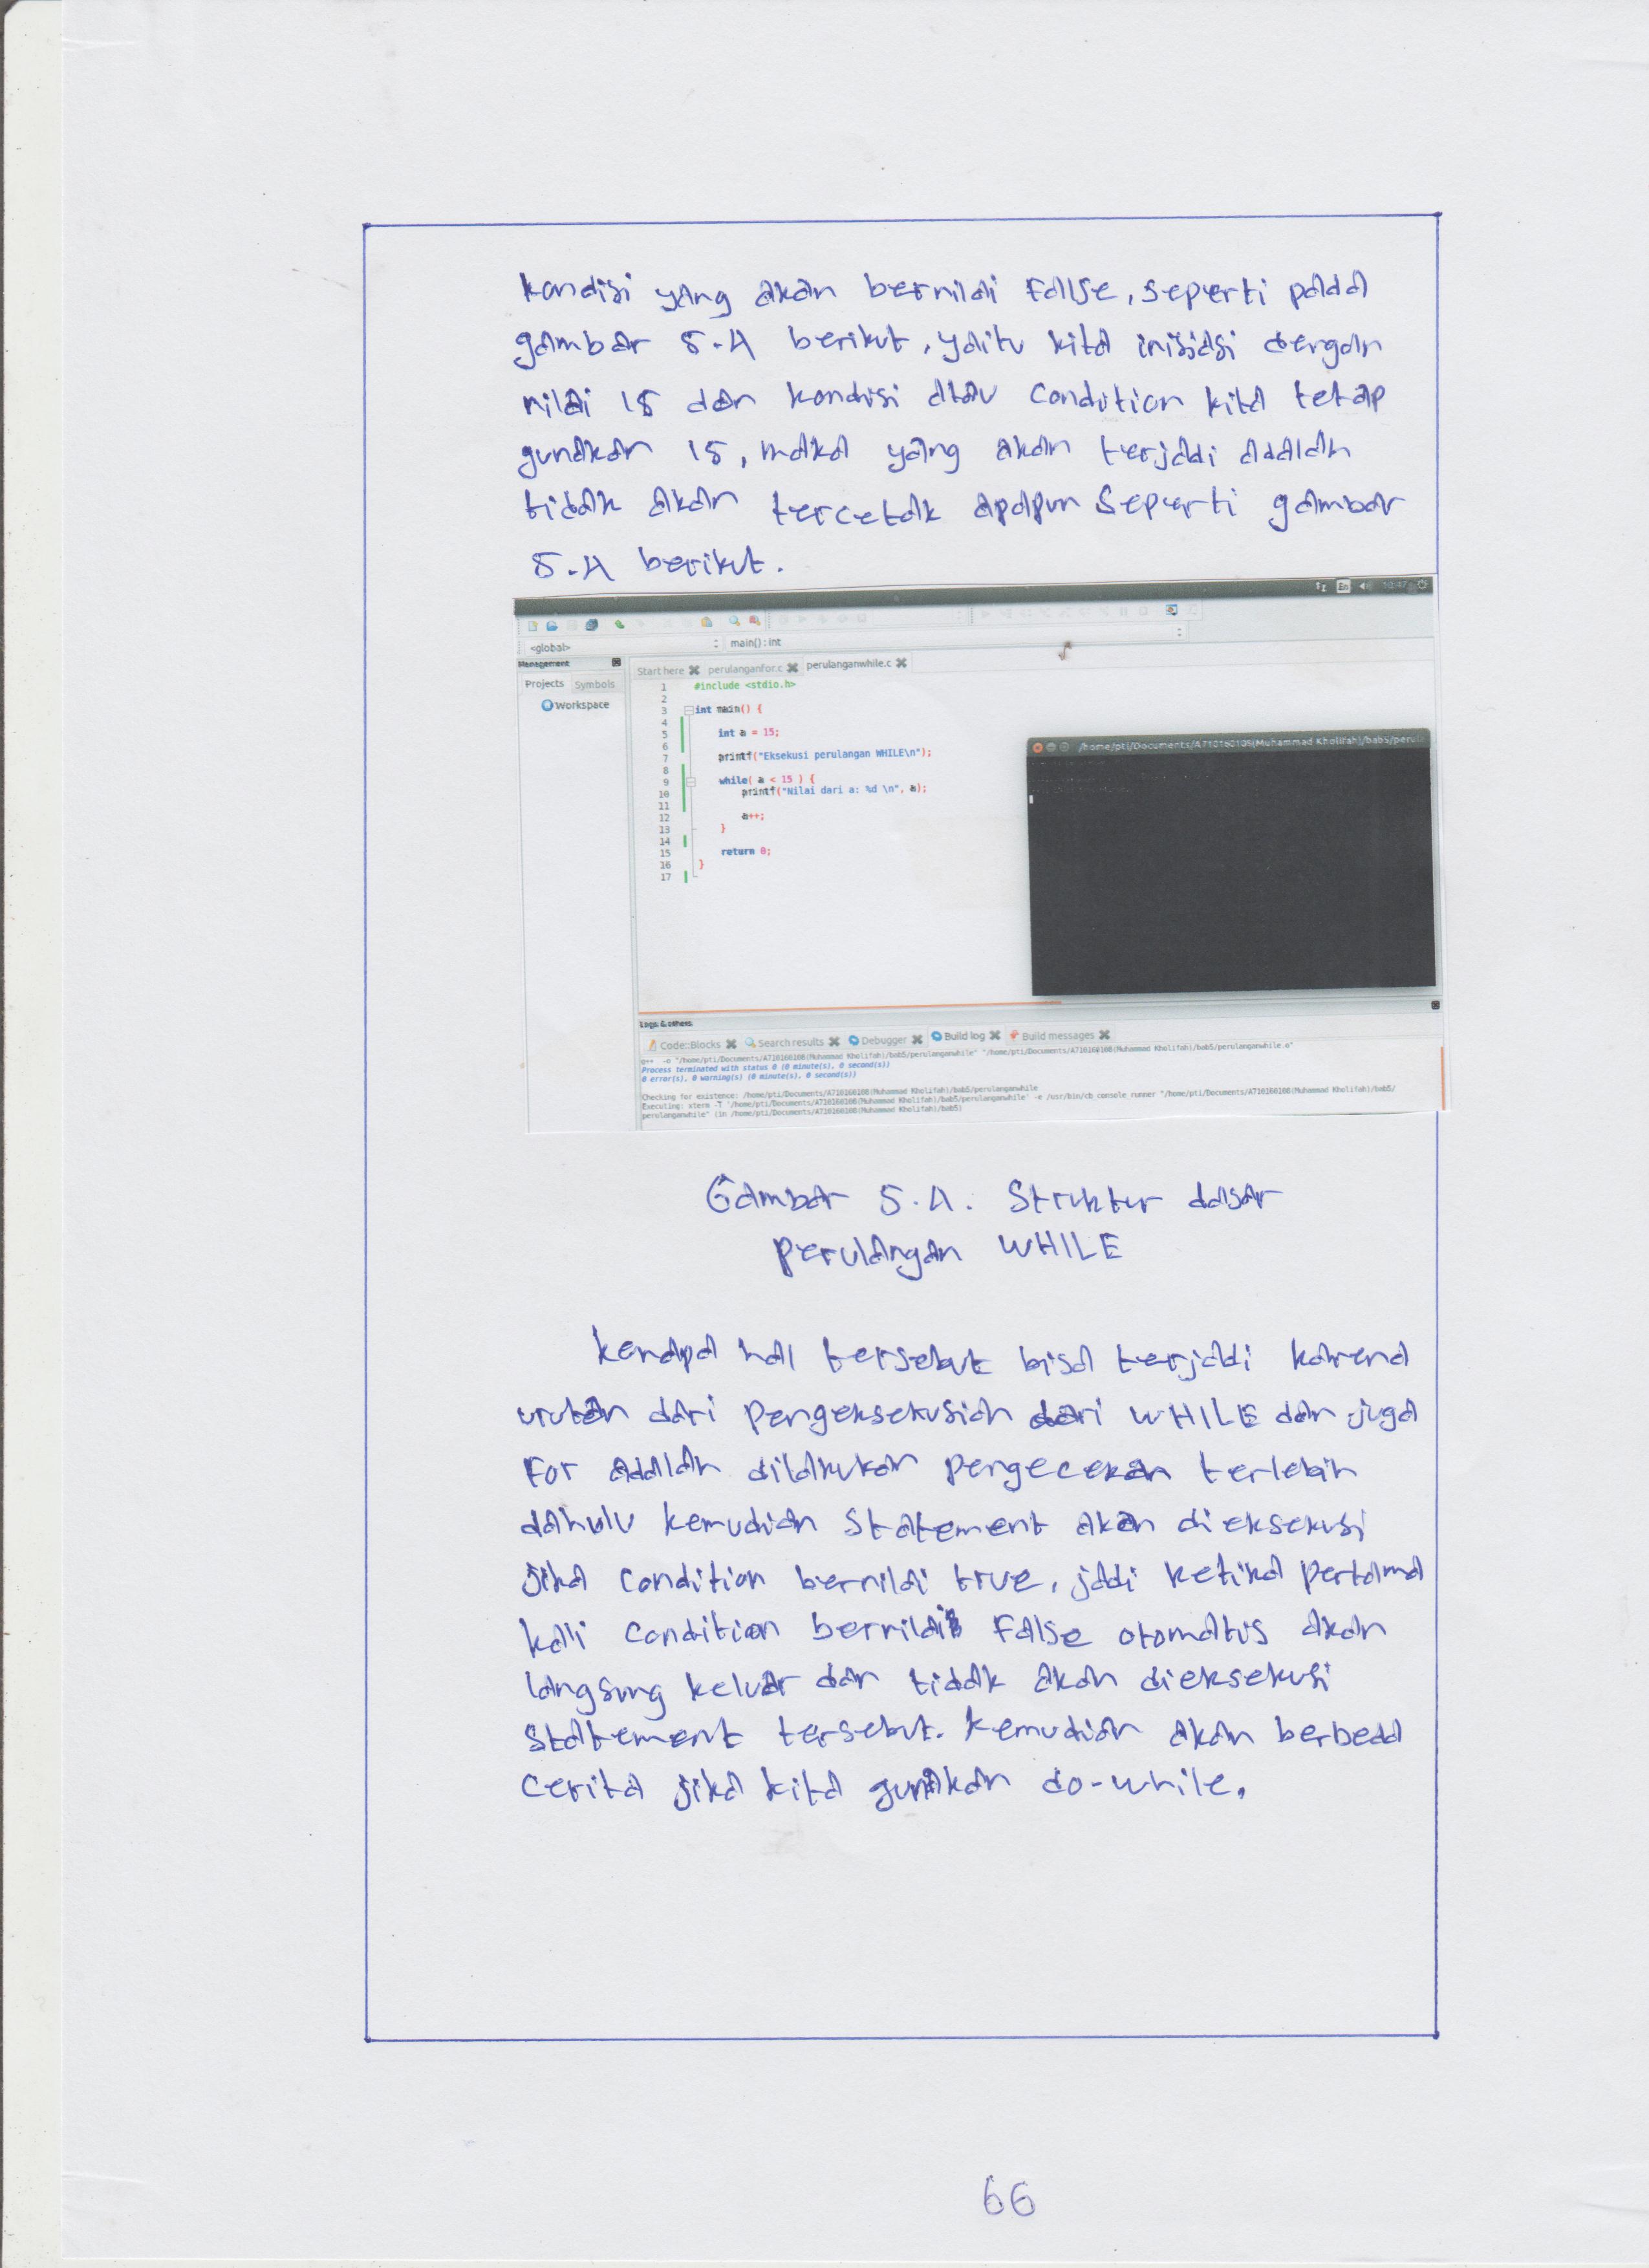 kondisi yang akan bernilai False, seperti pada
gambar 5.4 berikut, yaitu kita inisiasi dengan
nilai 15 dan kondisi atau condition kita tetap
gunakan 15, maka yang akan terjadi adalah
tidak akan tercetak apapun seperti gambar
5.4 berikut.
En
<global> main() : int
Management
Start here perulanganfor.c perulanganwhile.c
Projects Symbols
Workspace
1 #include <stdio.h>
2
3 int main() {
4
5 int a = 15;
6
7 printf("Eksekusi perulangan WHILE\n");
8
9 while( a < 15 ) {
10 printf("Nilai dari a: %d \n", a);
11
12 a++;
13 }
14
15 return 0;
16 }
17
/home/pti/Documents/A710160108(Muhammad Kholifah)/bab5/perul
Logs & others
Code::Blocks Search results Debugger Build log Build messages
g++ -o "/home/pti/Documents/A710160108(Muhammad Kholifah)/bab5/perulanganwhile" "/home/pti/Documents/A710160108(Muhammad Kholifah)/bab5/perulanganwhile.o"
Process terminated with status 0 (0 minute(s), 0 second(s))
0 error(s), 0 warning(s) (0 minute(s), 0 second(s))
Checking for existence: /home/pti/Documents/A710160108(Muhammad Kholifah)/bab5/perulanganwhile
Executing: xterm -T '/home/pti/Documents/A710160108(Muhammad Kholifah)/bab5/perulanganwhile' -e /usr/bin/cb_console_runner "/home/pti/Documents/A710160108(Muhammad Kholifah)/bab5/
perulanganwhile" (in /home/pti/Documents/A710160108(Muhammad Kholifah)/bab5)
Gambar 5.4. Struktur dasar
perulangan WHILE
kenapa hal tersebut bisa terjadi karena
urutan dari pengeksekusian dari WHILE dan juga
For adalah dilakukan pengecekan terlebih
dahulu kemudian statement akan dieksekusi
jika condition bernilai true, jadi ketika pertama
kali condition bernilai False otomatis akan
langsung keluar dan tidak akan dieksekusi
statement tersebut. kemudian akan berbeda
cerita jika kita gunakan do-while.
66